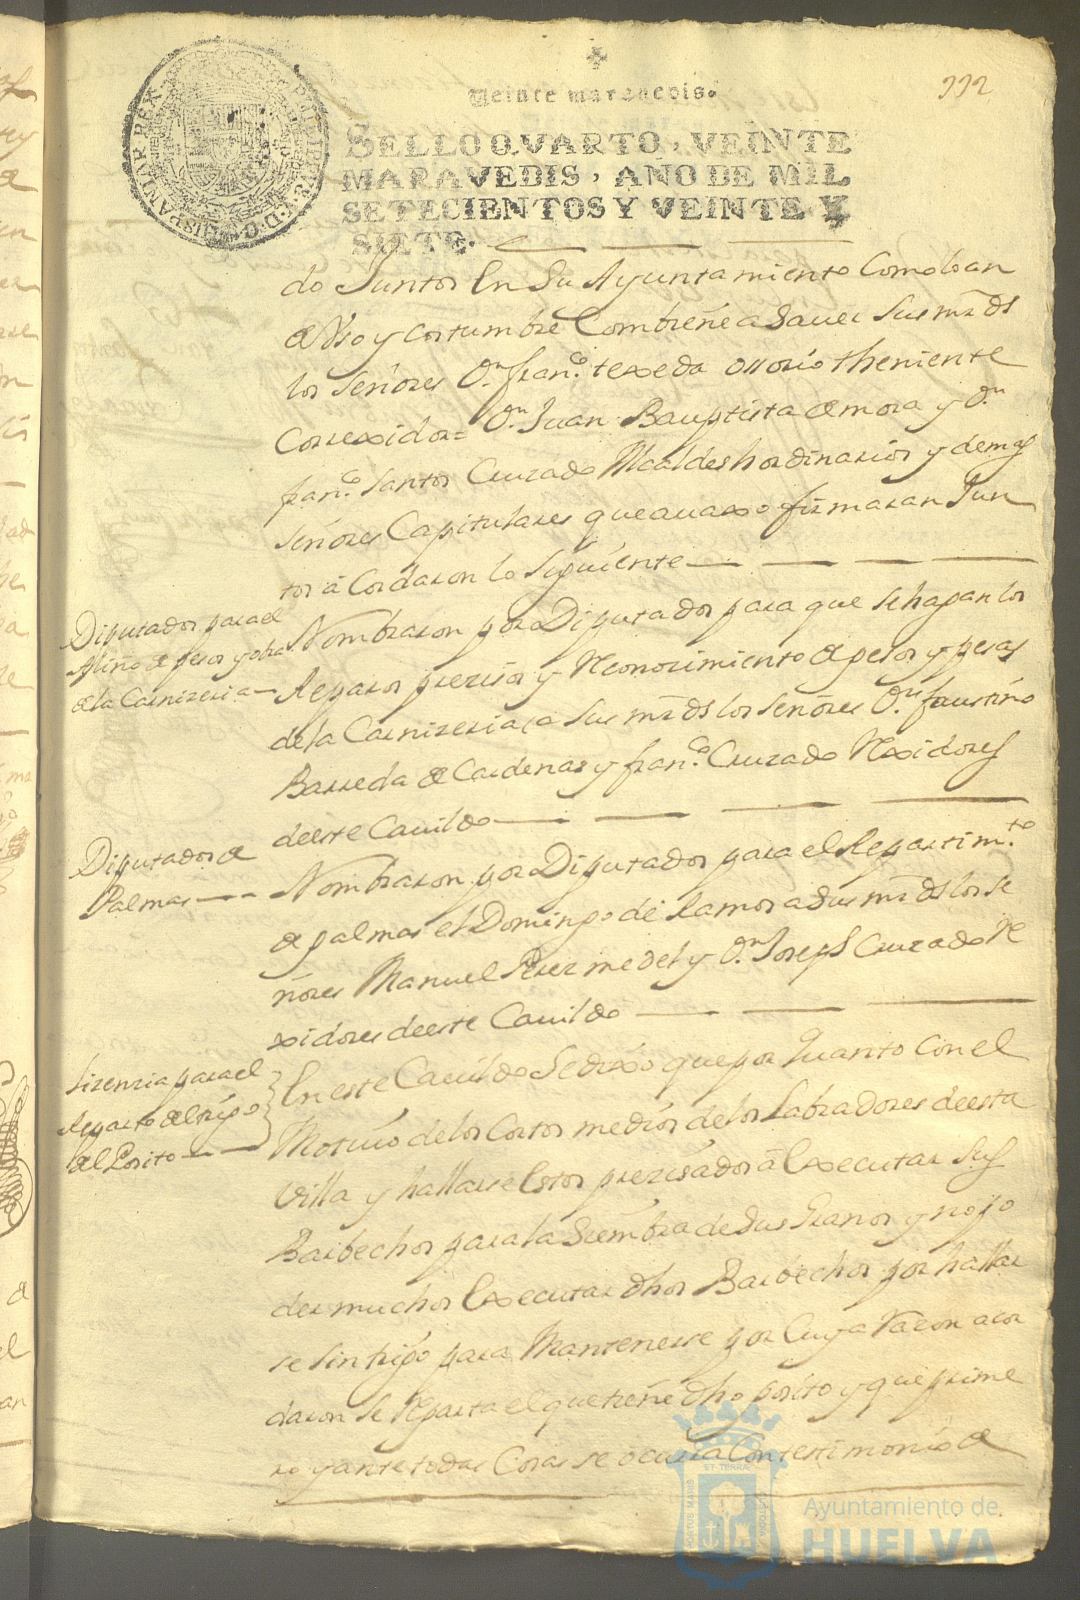 332
Veinte maravedis.
SELLO QVARTO, VEINTE
MARAVEDIS, AÑO DE MIL
SETECIENTOS Y VEINTE Y
SIETE.
HISPANIAR REX
PHILIPPVS V D G
do Juntos En Su Ayuntamiento Como loan
de Vso y costumbre Combiene a Sauer Sus mrds
los señores Dn. franco. texeda ossorio theniente
Correxidor = Dn. Juan Bauptista de mora y Dn.
franco. santos Cruzado Alcaldes hordinarios y demas
señores Capitulares que auaxo firmaran Jun
tos acordaron lo Siguiente
Diputados para el
Aliño de pesos y obra
de la Carnizeria
Nombraron por Diputados para que se hagan los
Reparos prezisos y Reconozimiento de pesos y pesas
de la Carnizeria a sus mrds los señores Dn. faustino
Barreda de Cardenas y franco. Cruzado Rexidores
de este Cauildo
Diputados de
Palmas
Nombraron por Diputados para el Repartimto.
de palmas el Domingo de Ramos a Sus mrds los se
ñores Manuel Perez medel y Dn. Joseph Cruzado Re
xidores de este Cauildo
Lizenzia para el
Reparto del trigo
del Posito
En este Cauildo Se dixo que por quanto Con el
Motiuo de los Cortos medios de los Labradores de esta
Villa y hallarse Estos prezisados a Executar Sus
Barbechos para la Siembra de Sus Granos y no po
der muchos Executar dhos Barbechos por hallar
se sin trigo para Mantenerse por Cuya Razon acor
daron Se Reparta el que tiene dho posito y que prime
ro y ante todas Cosas se ocurra Con testimonio de
Ayuntamiento de
HUELVA